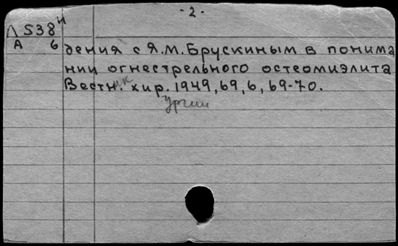 - 2 -
Л 538 и
А 6
дения с Я.М.Брускиным в понима
нии огнестрельного остеомиэлита
Вестн.ик хир.ургии 1949, 69, 6, 69-70.